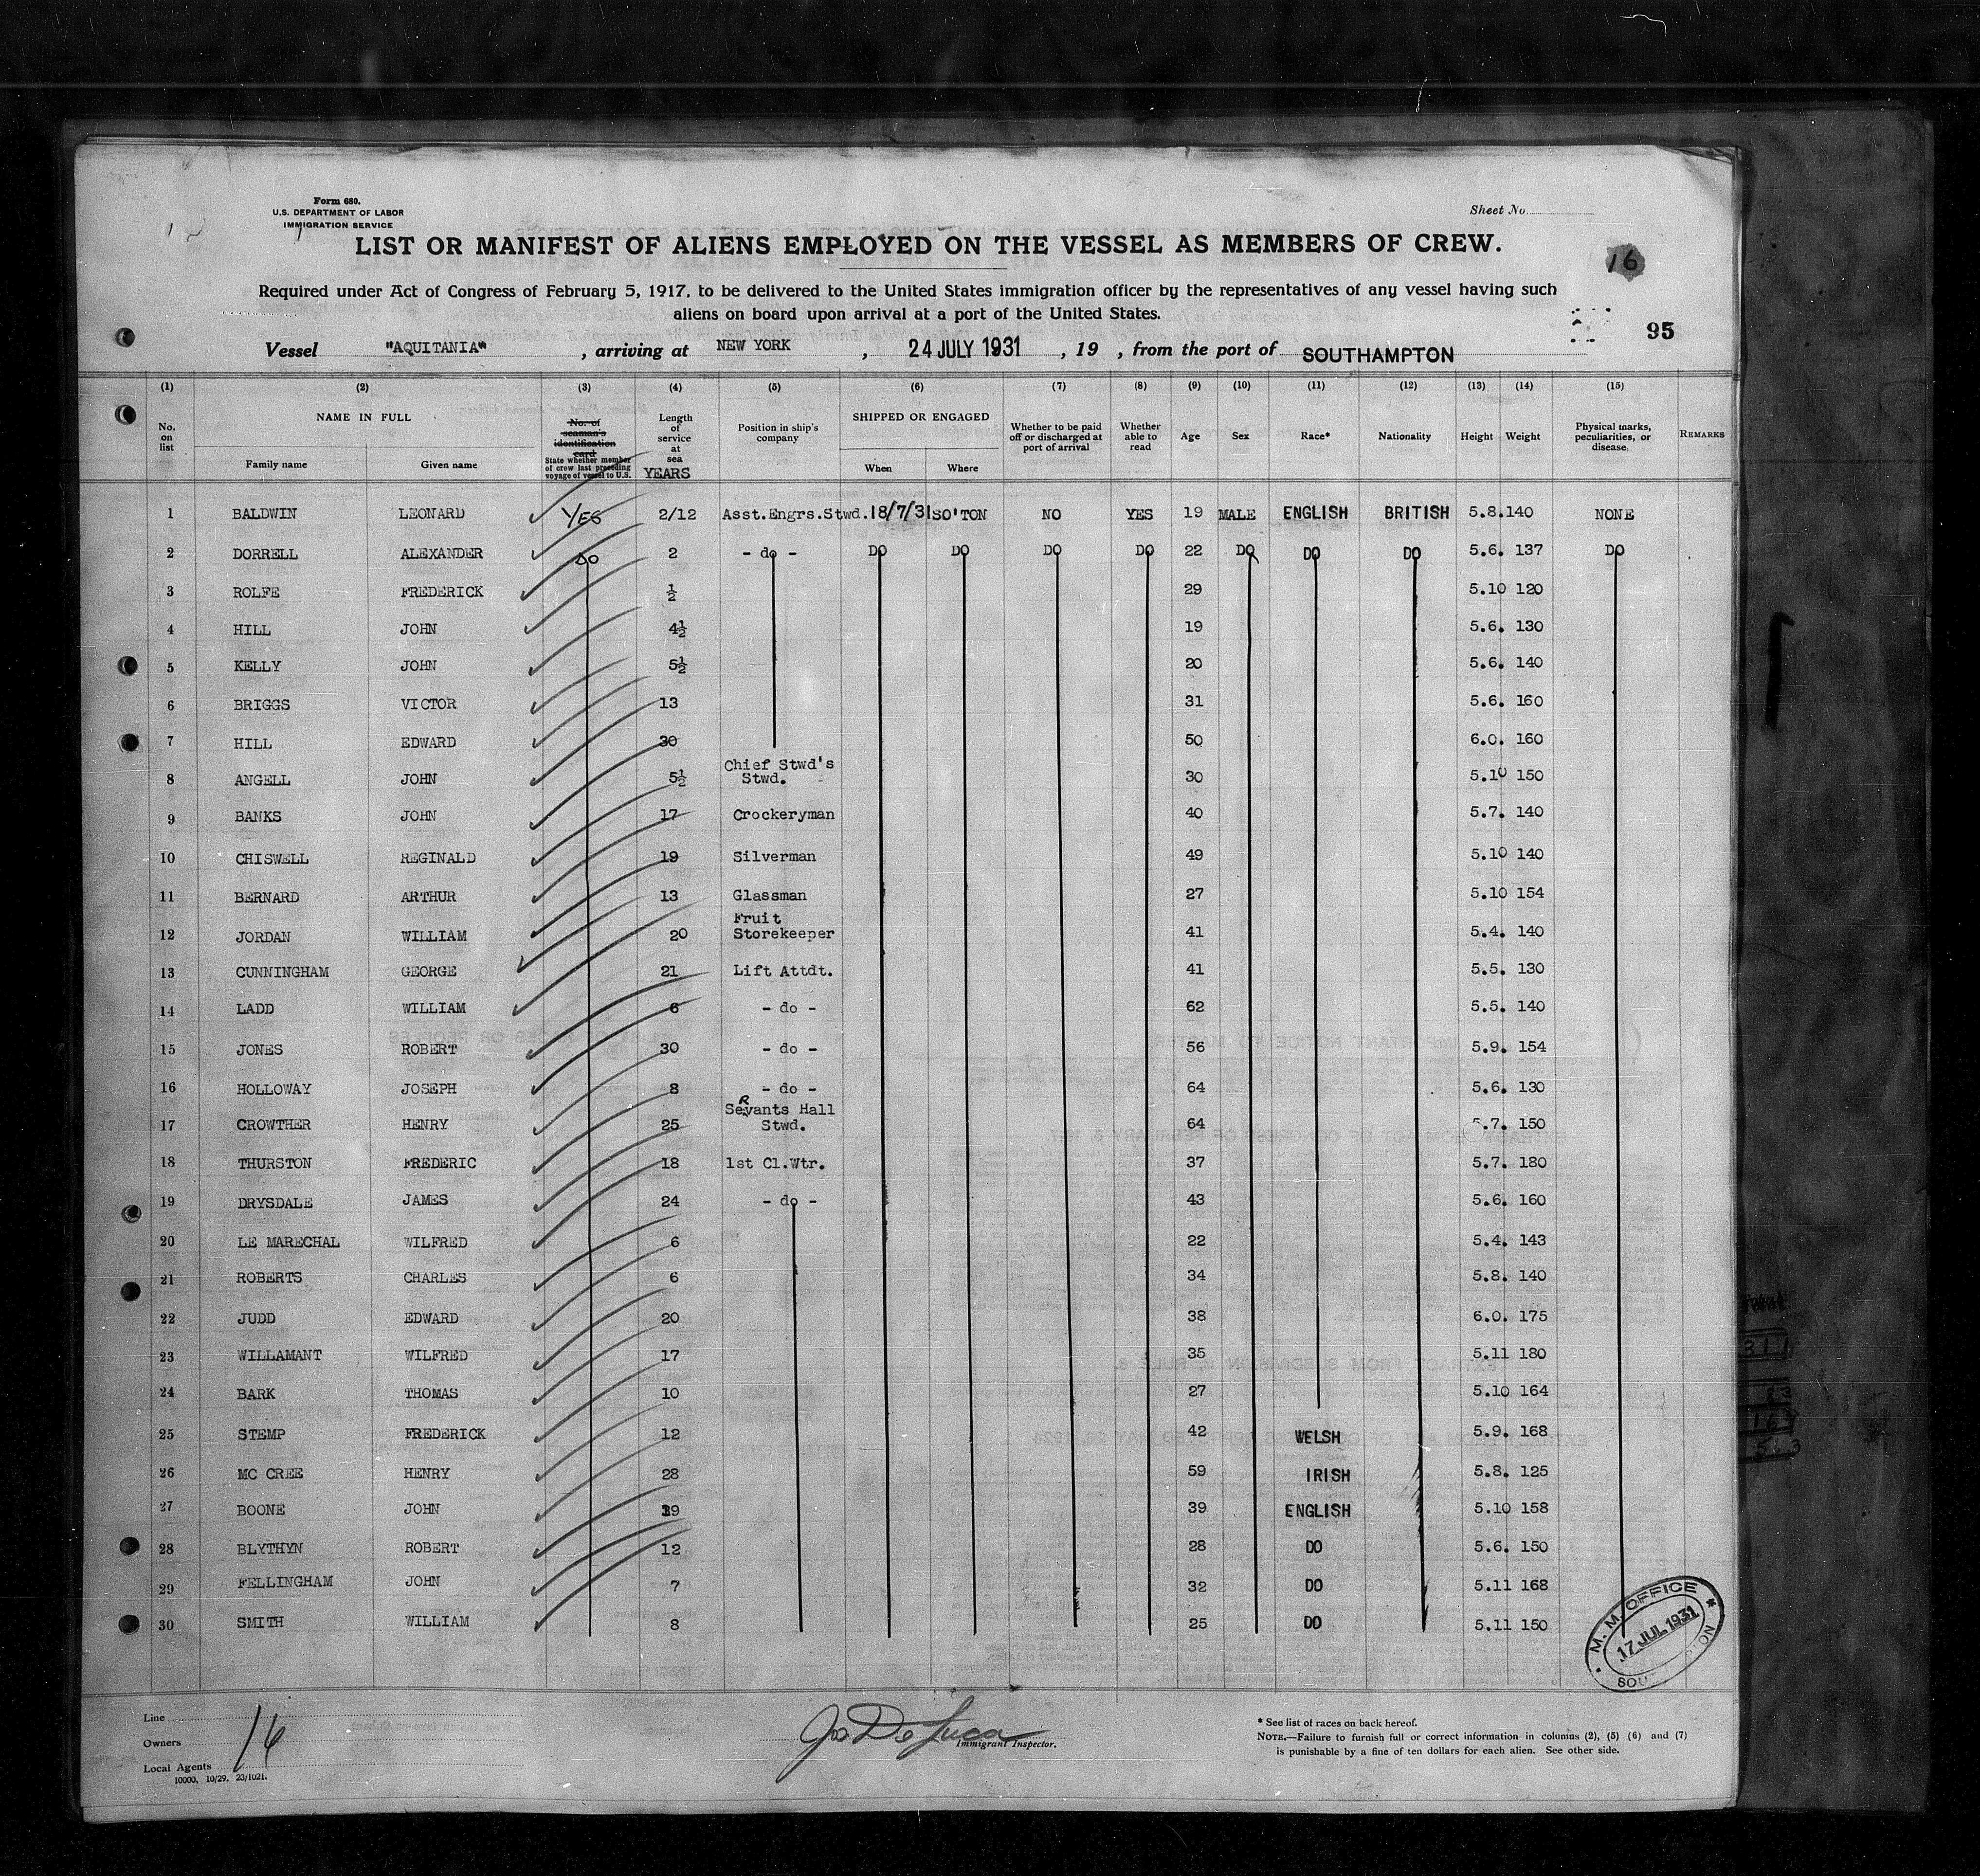 Form 680.
U.S. DEPARTMENT OF LABOR
IMMIGRATION SERVICE
Sheet No.
LIST OR MANIFEST OF ALIENS EMPLOYED ON THE VESSEL AS MEMBERS OF CREW.
16
Required under Act of Congress of February 5, 1917, to be delivered to the United States immigration officer by the representatives of any vessel having such
aliens on board upon arrival at a port of the United States.
95
Vessel "AQUITANIA" , arriving at NEW YORK , 24 JULY 1931 , 19 , from the port of SOUTHAMPTON
(1) (2) (3) (4) (5) (6) (7) (8) (9) (10) (11) (12) (13) (14) (15)
No. on list NAME IN FULL Family name Given name No. of seaman's identification card State whether member of crew last preceding voyage of vessel to U.S. Length of service at sea YEARS Position in ship's company SHIPPED OR ENGAGED When Where Whether to be paid off or discharged at port of arrival Whether able to read Age Sex Race* Nationality Height Weight Physical marks, peculiarities, or disease REMARKS
1 BALDWIN LEONARD YES 2/12 Asst.Engrs.Stwd. 18/7/31 SO'TON NO YES 19 MALE ENGLISH BRITISH 5.8. 140 NONE
2 DORRELL ALEXANDER DO 2 - do - DO DO DO DO 22 DO DO DO 5.6. 137 DO
3 ROLFE FREDERICK ½ 29 5.10 120
4 HILL JOHN 4½ 19 5.6. 130
5 KELLY JOHN 5½ 20 5.6. 140
6 BRIGGS VICTOR 13 31 5.6. 160
7 HILL EDWARD 30 50 6.0. 160
8 ANGELL JOHN 5½ Chief Stwd's Stwd. 30 5.10 150
9 BANKS JOHN 17 Crockeryman 40 5.7. 140
10 CHISWELL REGINALD 19 Silverman 49 5.10 140
11 BERNARD ARTHUR 13 Glassman 27 5.10 154
12 JORDAN WILLIAM 20 Fruit Storekeeper 41 5.4. 140
13 CUNNINGHAM GEORGE 21 Lift Attdt. 41 5.5. 130
14 LADD WILLIAM 6 - do - 62 5.5. 140
15 JONES ROBERT 30 - do - 56 5.9. 154
16 HOLLOWAY JOSEPH 8 - do - 64 5.6. 130
17 CROWTHER HENRY 25 Servants Hall Stwd. 64 5.7. 150
18 THURSTON FREDERIC 18 1st Cl.Wtr. 37 5.7. 180
19 DRYSDALE JAMES 24 - do - 43 5.6. 160
20 LE MARECHAL WILFRED 6 22 5.4. 143
21 ROBERTS CHARLES 6 34 5.8. 140
22 JUDD EDWARD 20 38 6.0. 175
23 WILLAMANT WILFRED 17 35 5.11 180
24 BARK THOMAS 10 27 5.10 164
25 STEMP FREDERICK 12 42 WELSH 5.9. 168
26 MC CREE HENRY 28 59 IRISH 5.8. 125
27 BOONE JOHN 19 39 ENGLISH 5.10 158
28 BLYTHYN ROBERT 12 28 DO 5.6. 150
29 FELLINGHAM JOHN 7 32 DO 5.11 168
30 SMITH WILLIAM 8 25 DO 5.11 150
M. M. OFFICE
17 JUL 1931
Line
Owners
Local Agents
16
10000, 10/29. 23/1021.
Jos De Luca
Immigrant Inspector.
* See list of races on back hereof.
NOTE.—Failure to furnish full or correct information in columns (2), (5) (6) and (7)
is punishable by a fine of ten dollars for each alien. See other side.